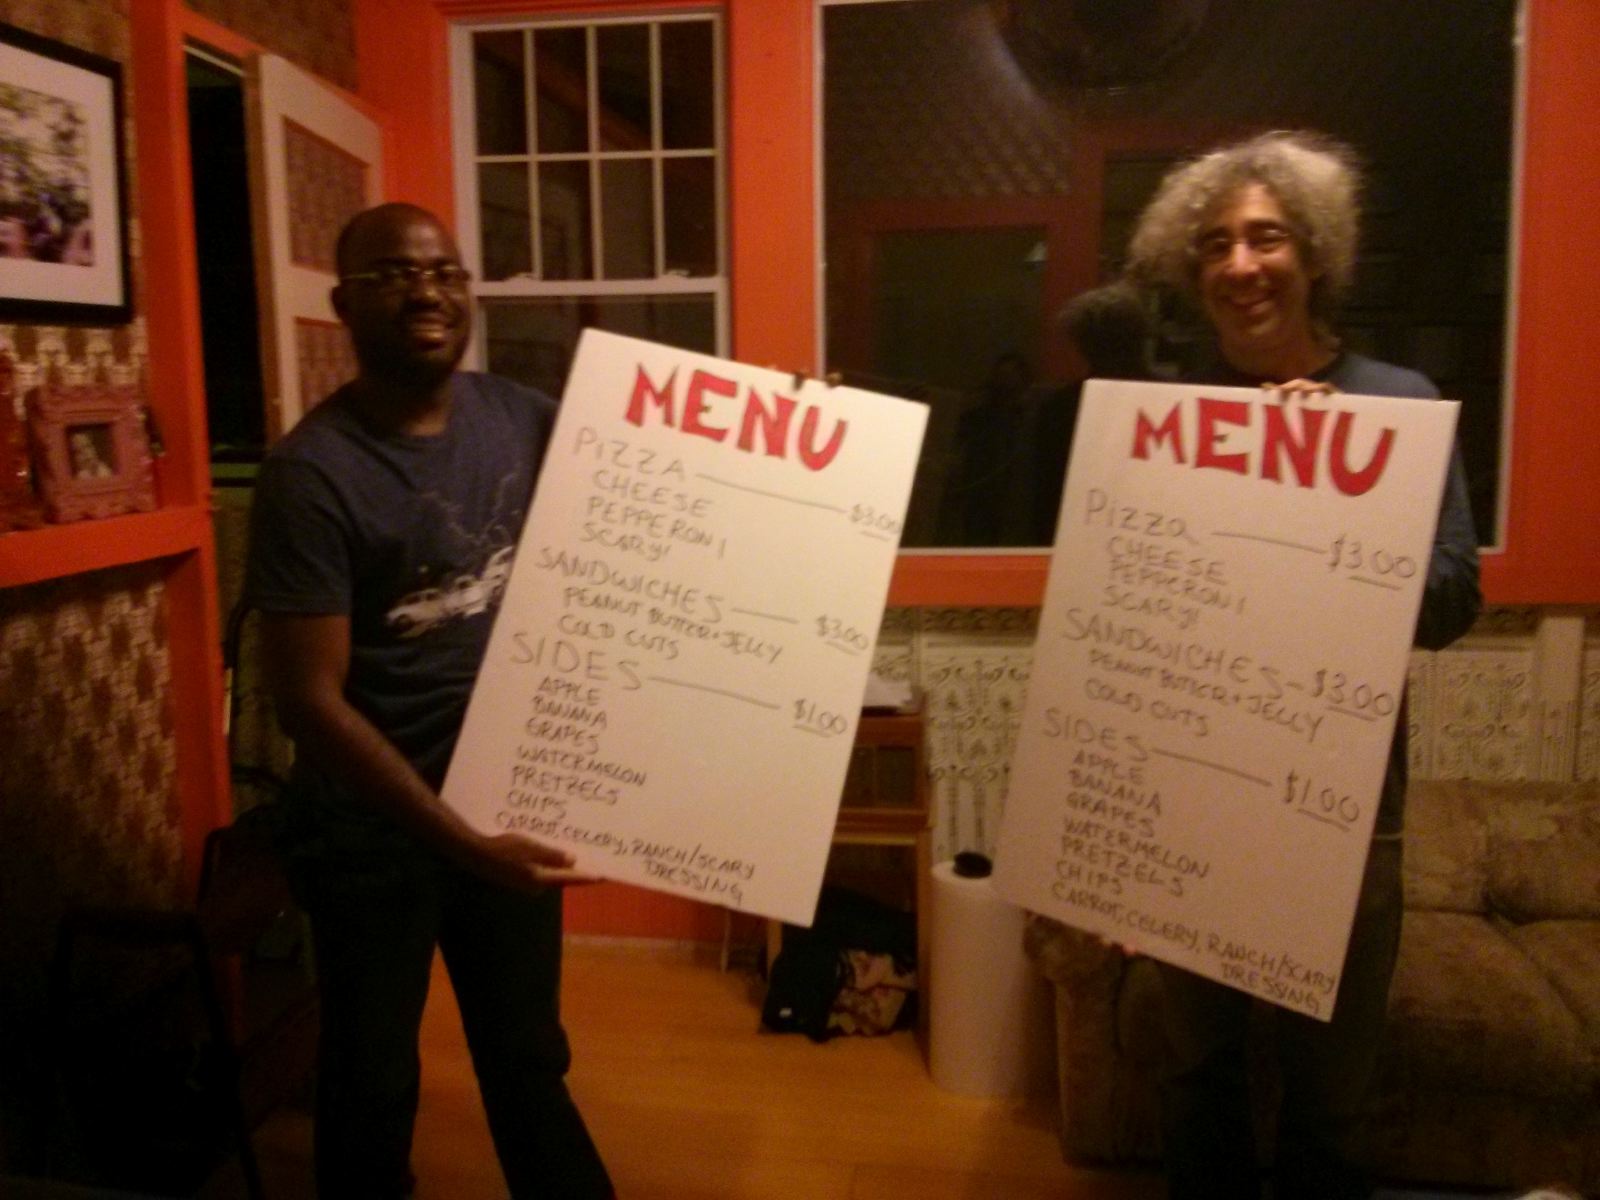 MENU
PIZZA $3.00
CHEESE
PEPPERONI
SCARY!
SANDWICHES $3.00
PEANUT BUTTER + JELLY
COLD CUTS
SIDES $1.00
APPLE
BANANA
GRAPES
WATERMELON
PRETZELS
CHIPS
CARROT, CELERY, RANCH/SCARY
DRESSING
MENU
Pizza $3.00
CHEESE
PEPPERONI
SCARY!
SANDWICHES - $3.00
PEANUT BUTTER + JELLY
COLD CUTS
SIDES $1.00
APPLE
BANANA
GRAPES
WATERMELON
PRETZELS
CHIPS
CARROT, CELERY, RANCH/SCARY
DRESSING